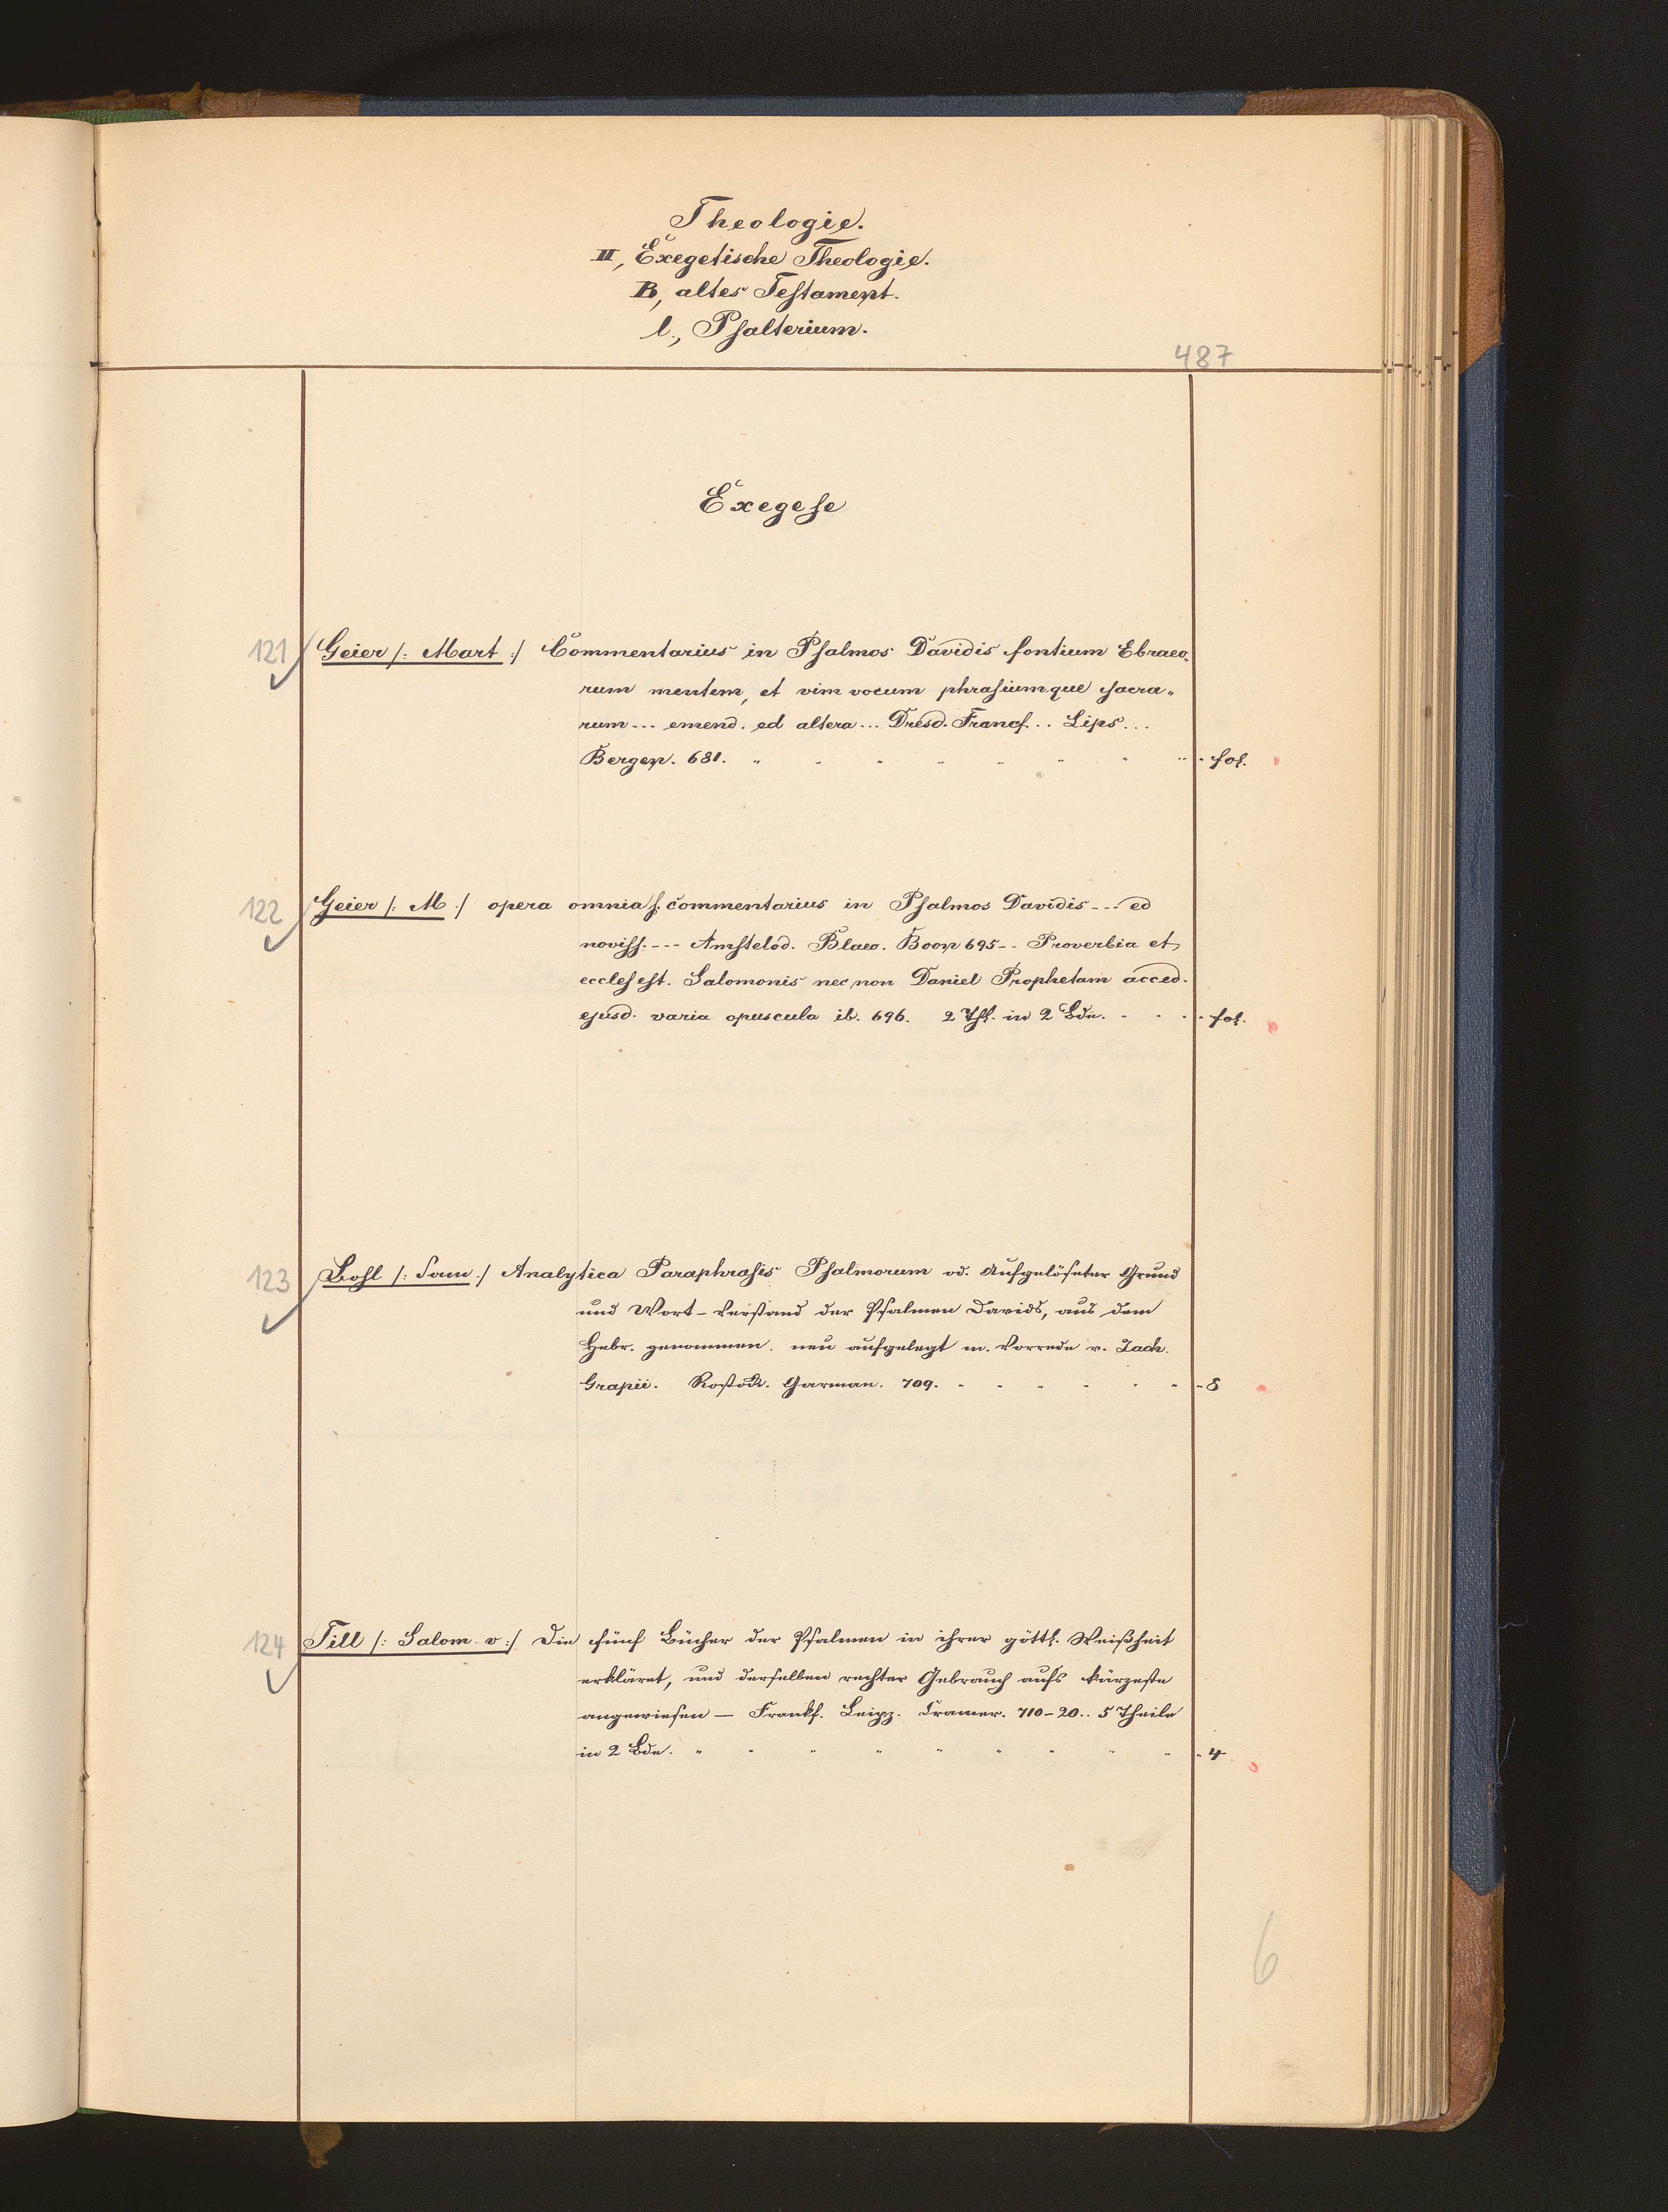 Theologie.
II, Exegetische Theologie.
B, altes Testament.
l., Psalterium.
487
Exegese
121 Geier /: Mart :/ Commentarius in Psalmos Davidis fontium Ebraeo-
rum mentem, et vim vocum phrasiumque sacra-
rum --- emend. ed altera ... Dresd. Francf. .. Lips ...
Bergen. 681. fol.
122 Geier /: M :/ opera omnia s. commentarius in Psalmos Davidis --- ed
noviss. --- Amstelod. Blaeo. Boon 695 -- Proverbia et
ecclesest. Salomonis nec non Daniel Prophetam acced.
ejusd. varia opuscula ib. 696. 2 Thl. in 2 Bdn. fol.
123 Bohl /: Sam :/ Analytica Paraphrasis Psalmorum od. Aufgelöseter Grund
und Wort-Verstand der Psalmen Davids, aus dem
Hebr. genommen. neu aufgelegt m. Vorrede v. Zach.
Grapii. Rostock. Garman. 709. 8
124 Till /: Salom. v :/ Die fünf Bücher der Psalmen in ihrer göttl. Weißheit
erkläret, und derselben rechter Gebrauch aufs kürzeste
angewiesen — Frankf. Leipz. Cramer. 710-20.. 5 Theile
in 2 Bdn. 4
6